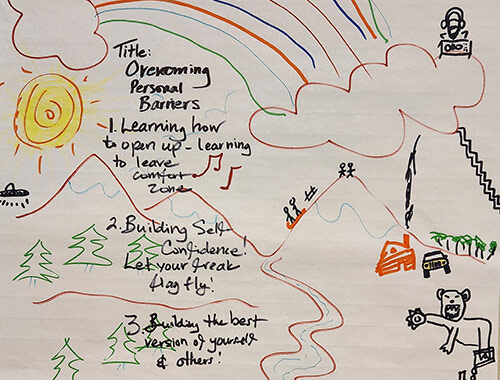 Title:
Overcoming
Personal
Barriers
1. Learning how
to open up - learning
to leave
comfort
zone
2. Building Self-
Confidence!
Let your freak
flag fly!
3. Building the best
version of yourself
& others!